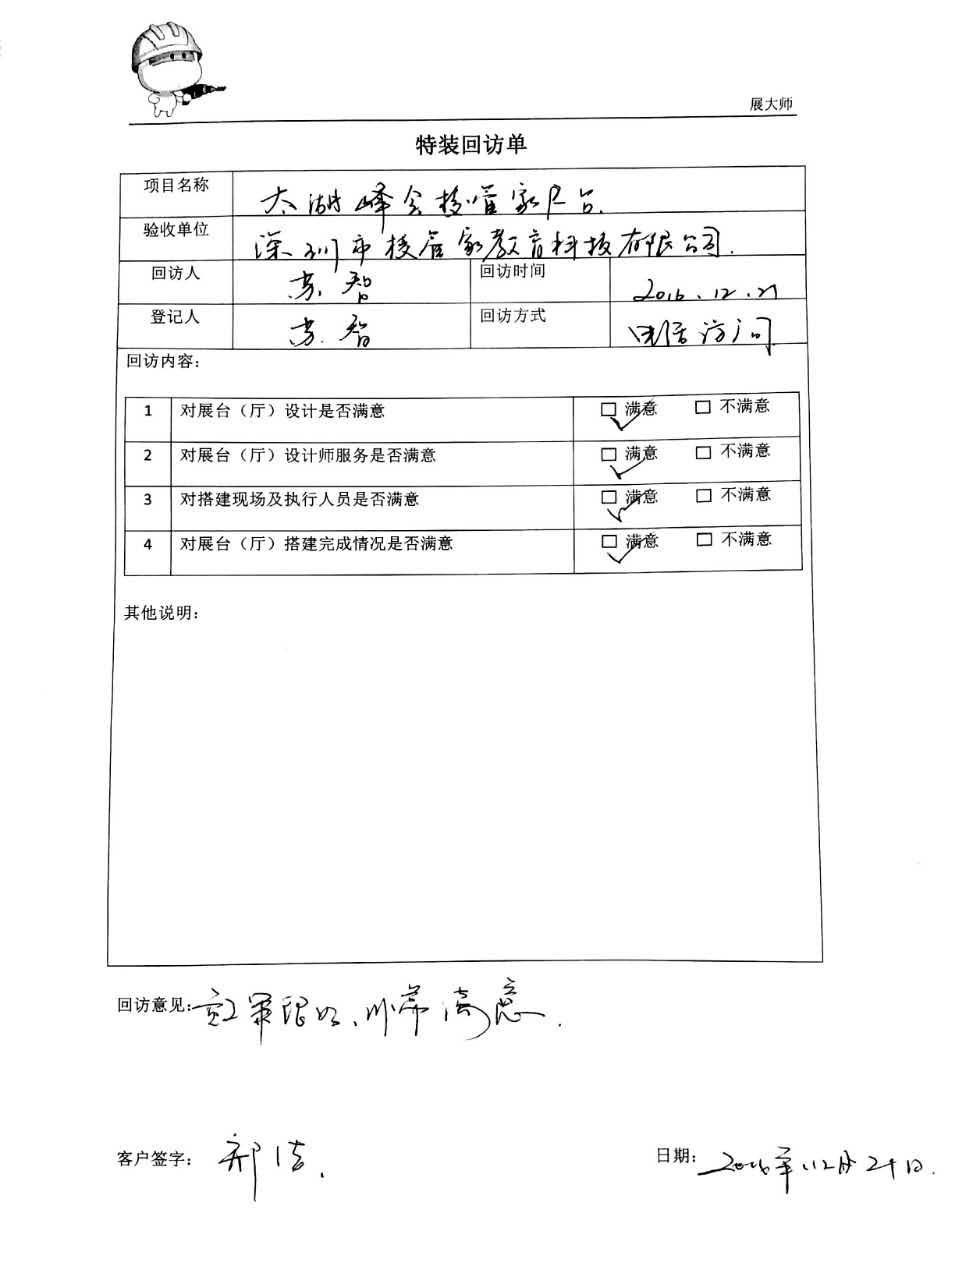 展大师
特装回访单
项目名称 太湖峰会校管家展台.
验收单位 深圳市校管家教育科技有限公司.
回访人 苏智 回访时间 2016.12.21
登记人 苏智 回访方式 电话访问
回访内容：
1 对展台（厅）设计是否满意 □ 满意 □ 不满意
2 对展台（厅）设计师服务是否满意 □ 满意 □ 不满意
3 对搭建现场及执行人员是否满意 □ 满意 □ 不满意
4 对展台（厅）搭建完成情况是否满意 □ 满意 □ 不满意
其他说明：
回访意见： 效果很好、非常满意.
客户签字：
日期： 2016年12月21日.